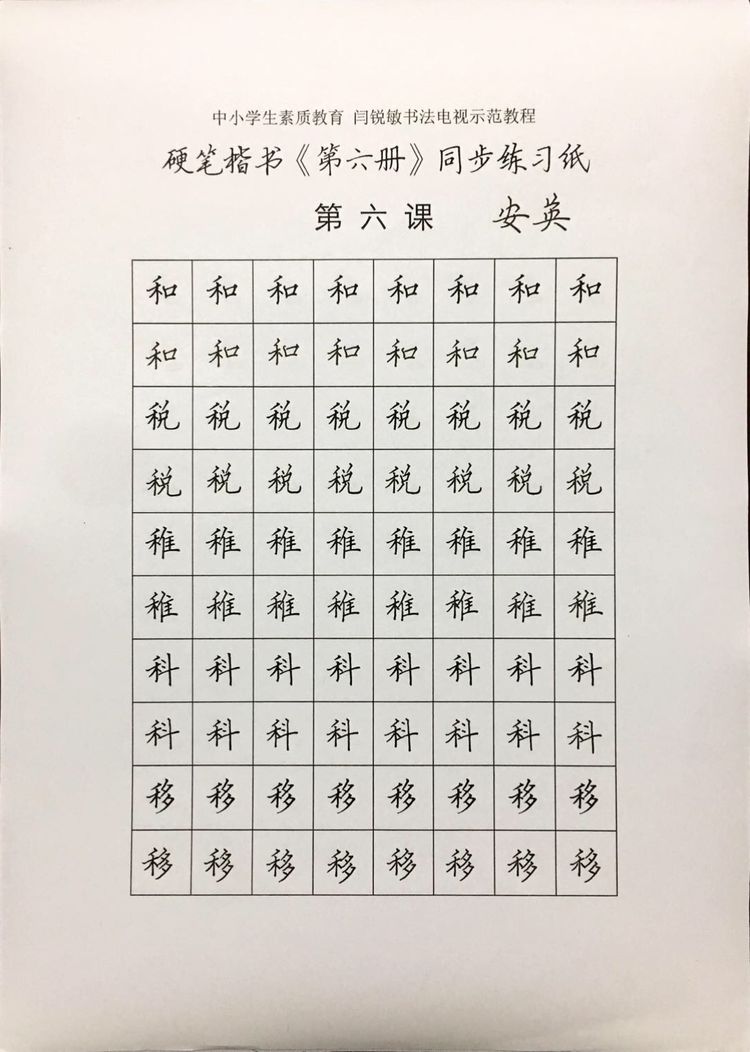 中小学生素质教育 闫锐敏书法电视示范教程
硬笔楷书《第六册》同步练习纸
第六课 安英
和和和和和和和和
和和和和和和和和
税税税税税税税税
税税税税税税税税
稚稚稚稚稚稚稚稚
稚稚稚稚稚稚稚稚
科科科科科科科科
科科科科科科科科
移移移移移移移移
移移移移移移移移